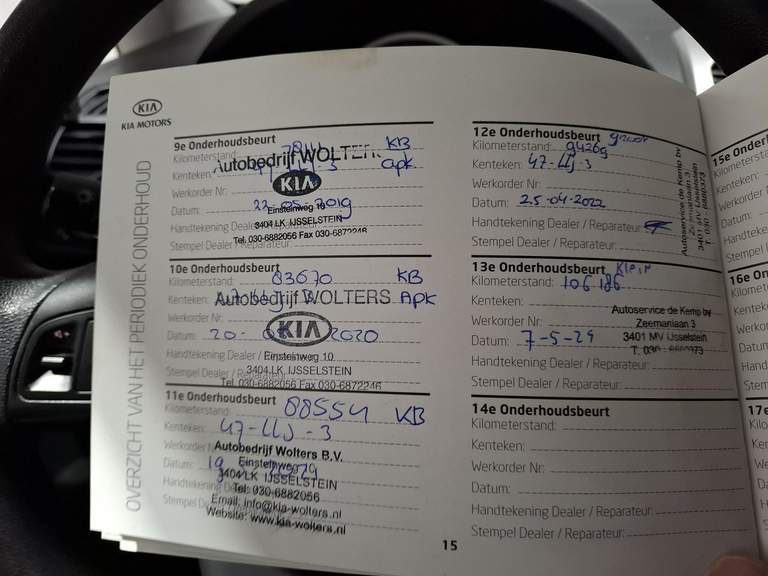 KIA
KIA MOTORS
OVERZICHT VAN HET PERIODIEK ONDERHOUD
9e Onderhoudsbeurt
Kilometerstand: KB
Autobedrijf WOLTERS
Kenteken: apk
KIA
Werkorder Nr:
Datum: 22-05-2019
Einsteinweg 10
Handtekening Dealer
3404 LK IJSSELSTEIN
Stempel Dealer / Reparateur:
Tel. 030-6882056 Fax 030-6872246
10e Onderhoudsbeurt
Kilometerstand: 83670 KB
Kenteken: APK
Autobedrijf WOLTERS
Werkorder Nr
KIA
Datum: 20- 2020
Handtekening Dealer
Einsteinweg 10
3404 LK IJSSELSTEIN
Stempel Dealer / Reparateur:
Tel. 030-6882056 Fax 030-6872246
11e Onderhoudsbeurt
Kilometerstand: 88554 KB
Kenteken: 47-LLJ-3
Werkorder Nr
Autobedrijf Wolters B.V.
Datum: 19
Einsteinweg 10
3404 LK IJSSELSTEIN
Tel: 030-6882056
Stempel
Email: info@kia-wolters.nl
Website: www.kia-wolters.nl
12e Onderhoudsbeurt groot
Kilometerstand: 94269
Kenteken: 47-LLJ-3
Werkorder Nr:
Datum: 25-04-2022
Handtekening Dealer / Reparateur:
Stempel Dealer / Reparateur:
Autoservice de Kemp bv
Zeemanlaan 3
3401 MV IJsselstein
T. 030 - 6880373
13e Onderhoudsbeurt Klein
Kilometerstand: 106186
Kenteken:
Autoservice de Kemp bv
Werkorder Nr:
Zeemanlaan 3
Datum: 7-5-24
3401 MV IJsselstein
Handtekening Dealer / Reparateur:
Stempel Dealer / Reparateur:
14e Onderhoudsbeurt
Kilometerstand:
Kenteken:
Werkorder Nr:
Datum:
Handtekening Dealer / Reparateur:
Stempel Dealer / Reparateur:
15
15e Onderh
Kilometer
Kenteken:
Werkorde
Datum:
Handteke
Stempel D
16e On
Kilomet
Kentek
Werko
Datum
Handt
Stemp
17e
Kilo
Ke
W
D